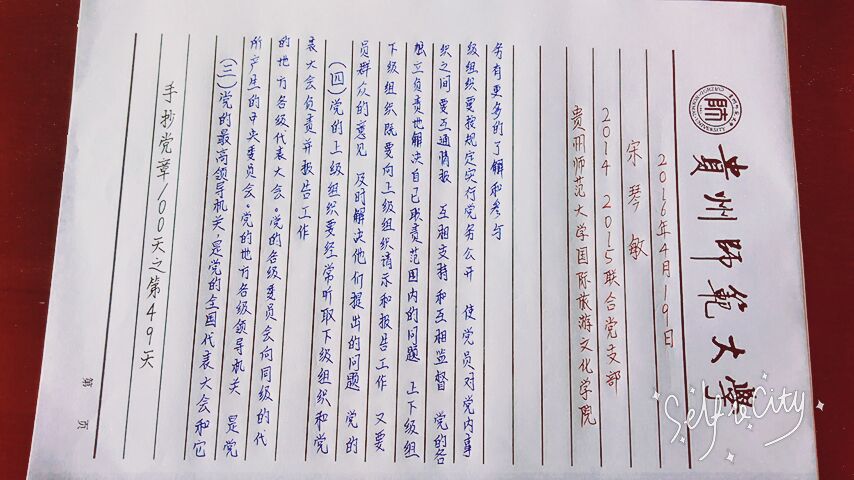 手抄党章100天之第49天
(三)党的最高领导机关,是党的全国代表大会和它
所产生的中央委员会。党的地方各级领导机关 是党
的地方各级代表大会。党的各级委员会向同级的代
表大会负责并报告工作
(四)党的上级组织要经常听取下级组织和党
员群众的意见 及时解决他们提出的问题 党的
下级组织既要向上级组织请示和报告工作 又要
独立负责地解决自己职责范围内的问题 上下级组
织之间要互通情报 互相支持和互相监督 党的各
级组织要按规定实行党务公开 使党员对党内事
务有更多的了解和参与
贵州师范大学国际旅游文化学院
2014 2015联合党支部
宋琴敏
2016年4月19日
貴州師範大學
第 页
Self City